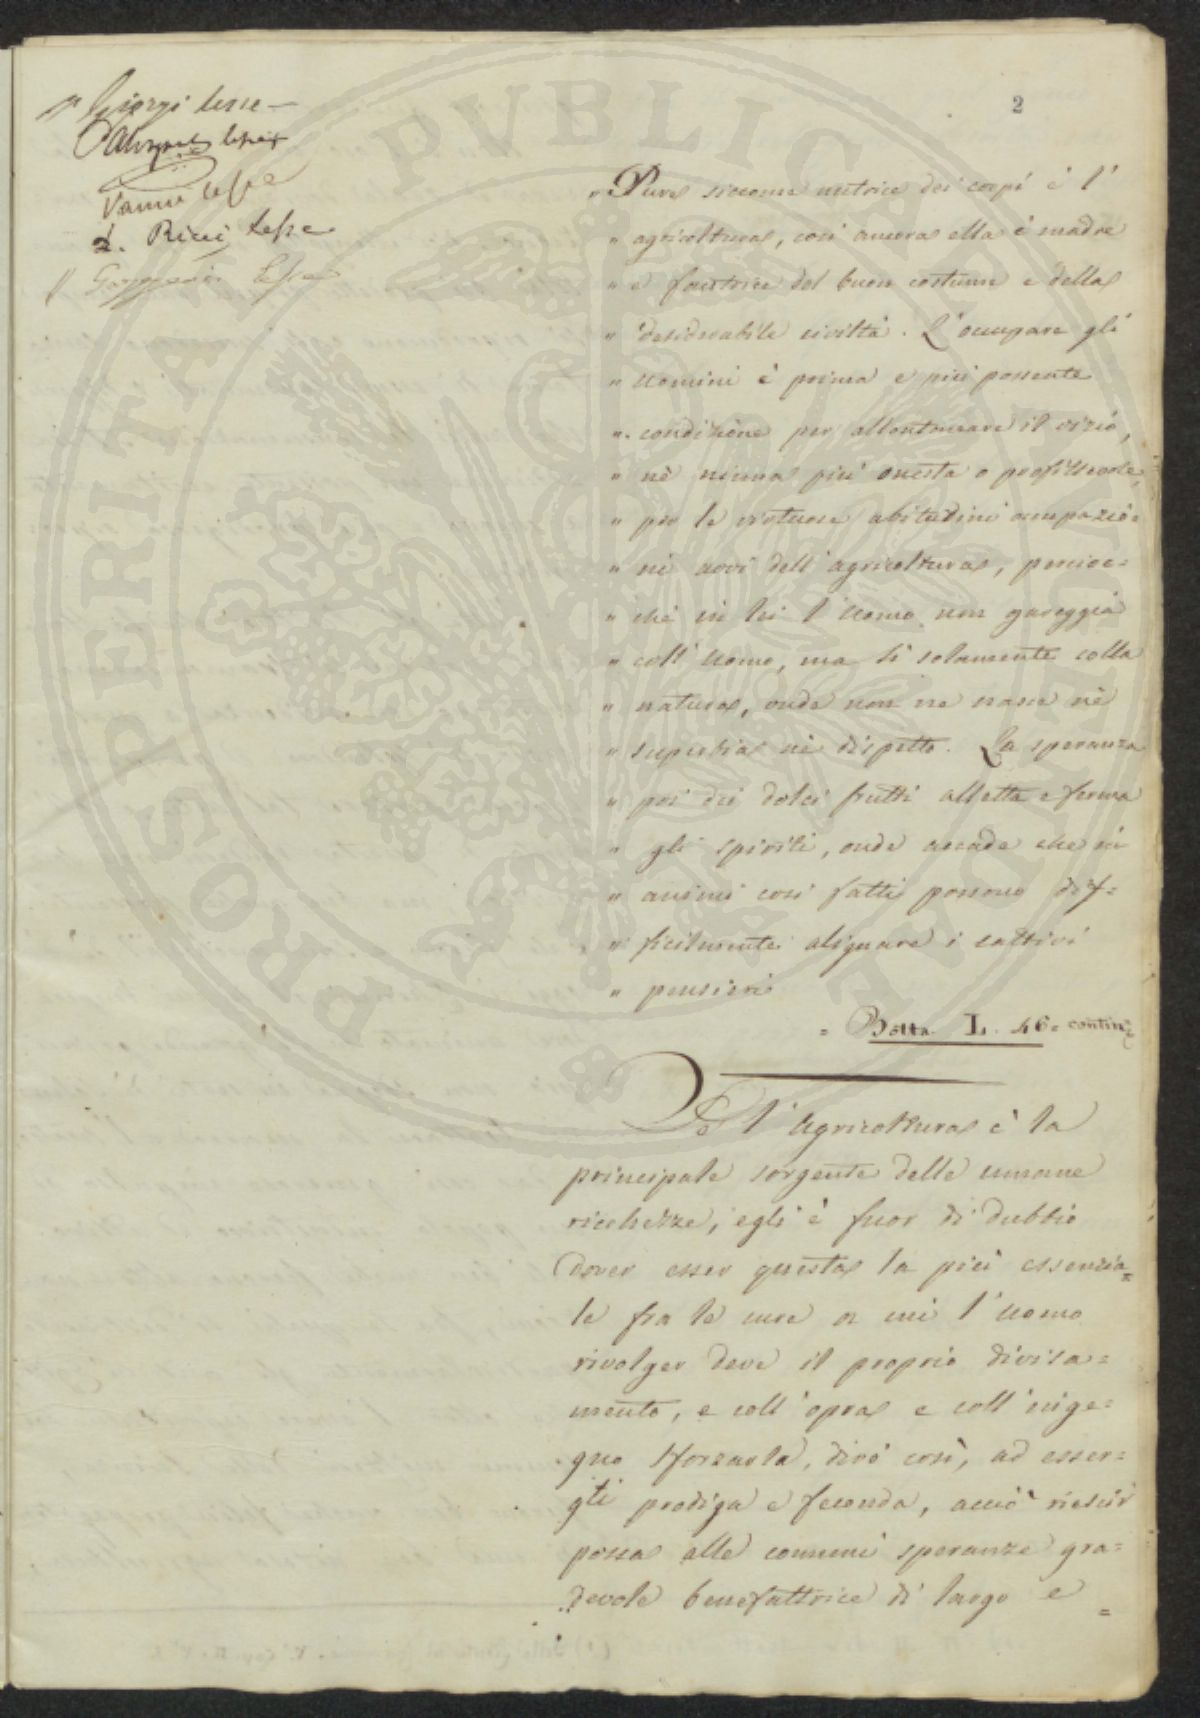 2
Giorgi lesse
Vanni lesse
L. Ricci lesse
lesse
" Pure siccome nutrice dei corpi è l'
" agricoltura, così ancora ella è madre
" e fautrice del buon costume e della
" desiderabile civiltà. L'occupare gli
" uomini è prima e più possente
" condizione per allontanare il vizio,
" nè niuna più onesta o profittevole
" per le virtuose abitudini occupazio=
" ne avvi dell'agricoltura, percioc=
" chè in lei l'uomo non gareggia
" coll'uomo, ma sì solamente colla
" natura, onde non ne nasce nè
" superbia nè dispetto. La speranza
" poi dei dolci frutti alletta e ferma
" gli spiriti, onde accade che in
" animi così fatti possono dif=
" ficilmente alignare i cattivi
" pensieri
= Botta L. 46. contin.e
Se l'Agricoltura è la
principale sorgente delle umane
ricchezze, egli è fuor di dubbio
dover esser questa la più essenzia=
le fra le cure a cui l'uomo
rivolger deve il proprio divisa=
mento, e coll'opra e coll'inge=
gno sforzarla, dirò così, ad esser=
gli prodiga e feconda, acciò riescir
possa alle comuni speranze gra=
devole benefattrice di largo e =
PROSPERITATI PVBLICAE